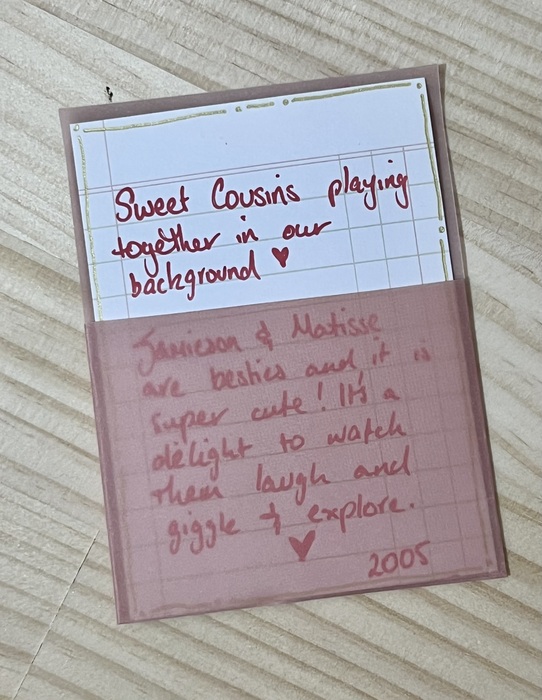 Sweet Cousins playing
together in our
background ♥
Jamieson & Matisse
are besties and it is
super cute! It's a
delight to watch
them laugh and
giggle & explore.
♥
2005